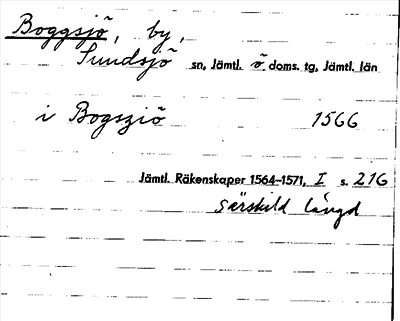 Boggsjö, by,
Sundsjö sn, Jämtl. ö doms. tg, Jämtl. län
i Bogsziö 1566
Jämtl. Räkenskaper 1564-1571, I s. 216
särskild längd